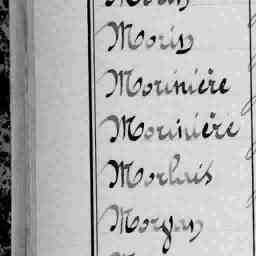 Morin
Morin
Morinière
Morinière
Morlais
Morgan